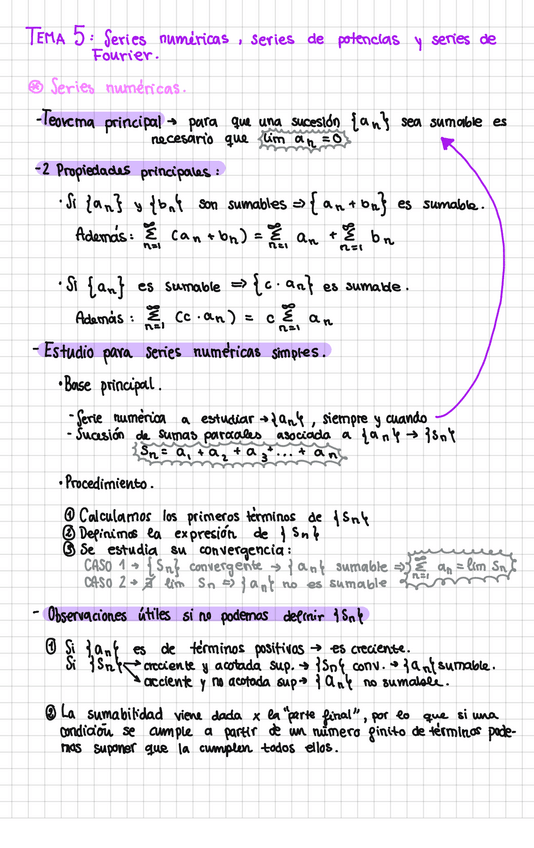 TEMA 5: Series numéricas, series de potencias y series de
Fourier.
⊛ Series numéricas.
-Teorema principal → para que una sucesión {an} sea sumable es
necesario que lim an = 0
-2 Propiedades principales:
· Si {an} y {bn} son sumables ⇒ {an + bn} es sumable.
Además: ∞Σn=1 (an + bn) = ∞Σn=1 an + ∞Σn=1 bn
· Si {an} es sumable ⇒ {c · an} es sumable.
Además: ∞Σn=1 (c · an) = c ∞Σn=1 an
- Estudio para series numéricas simples.
· Base principal.
-Serie numérica a estudiar → {an}, siempre y cuando
- Sucesión de sumas parciales asociada a {an} → {Sn}
Sn = a1 + a2 + a3 + ... + an
· Procedimiento.
① Calculamos los primeros términos de {Sn}
② Definimos la expresión de {Sn}
③ Se estudia su convergencia:
CASO 1 → {Sn} convergente → {an} sumable ⇒ ∞Σn=1 an = lim Sn
CASO 2 → ∄ lim Sn ⇒ {an} no es sumable
- Observaciones útiles si no podemos definir {Sn}
① Si {an} es de términos positivos → es creciente.
Si {Sn} → creciente y acotada sup. → {Sn} conv. → {an} sumable.
→ creciente y no acotada sup → {an} no sumable.
② La sumabilidad viene dada x la "parte final", por lo que si una
condición se cumple a partir de un número finito de términos pode-
mos suponer que la cumplen todos ellos.